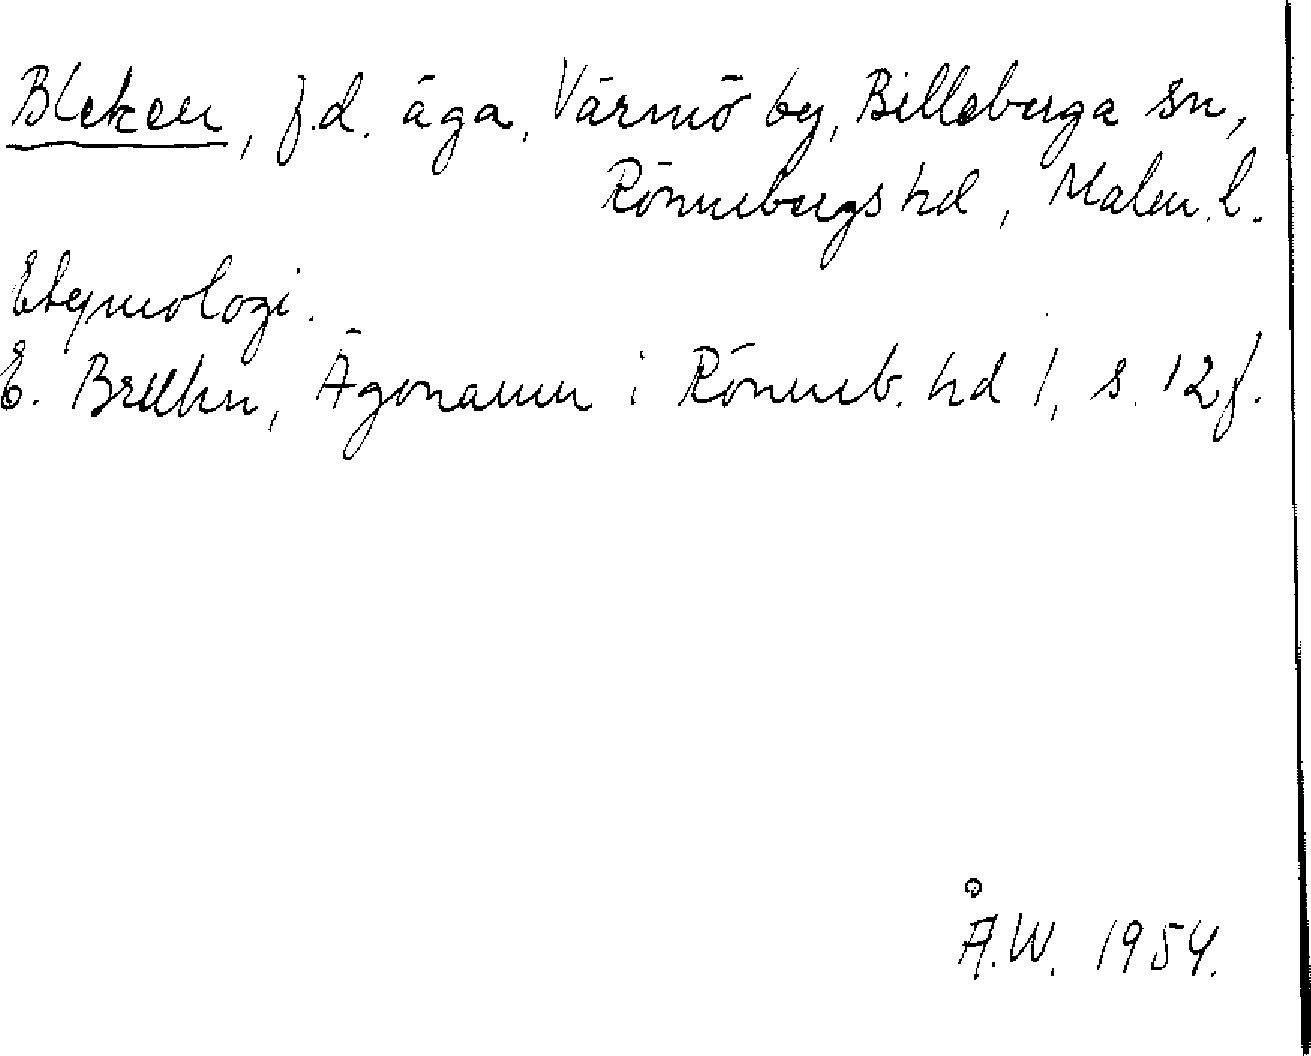 Bleken, f.d. äga, Värmö by, Billeberga sn,
Rönnebergs hd, Malm. l.
Etymologi.
E. Bruhn, Ägonamn i Rönneb. hd 1, s. 12 f.
Å.W. 1954.